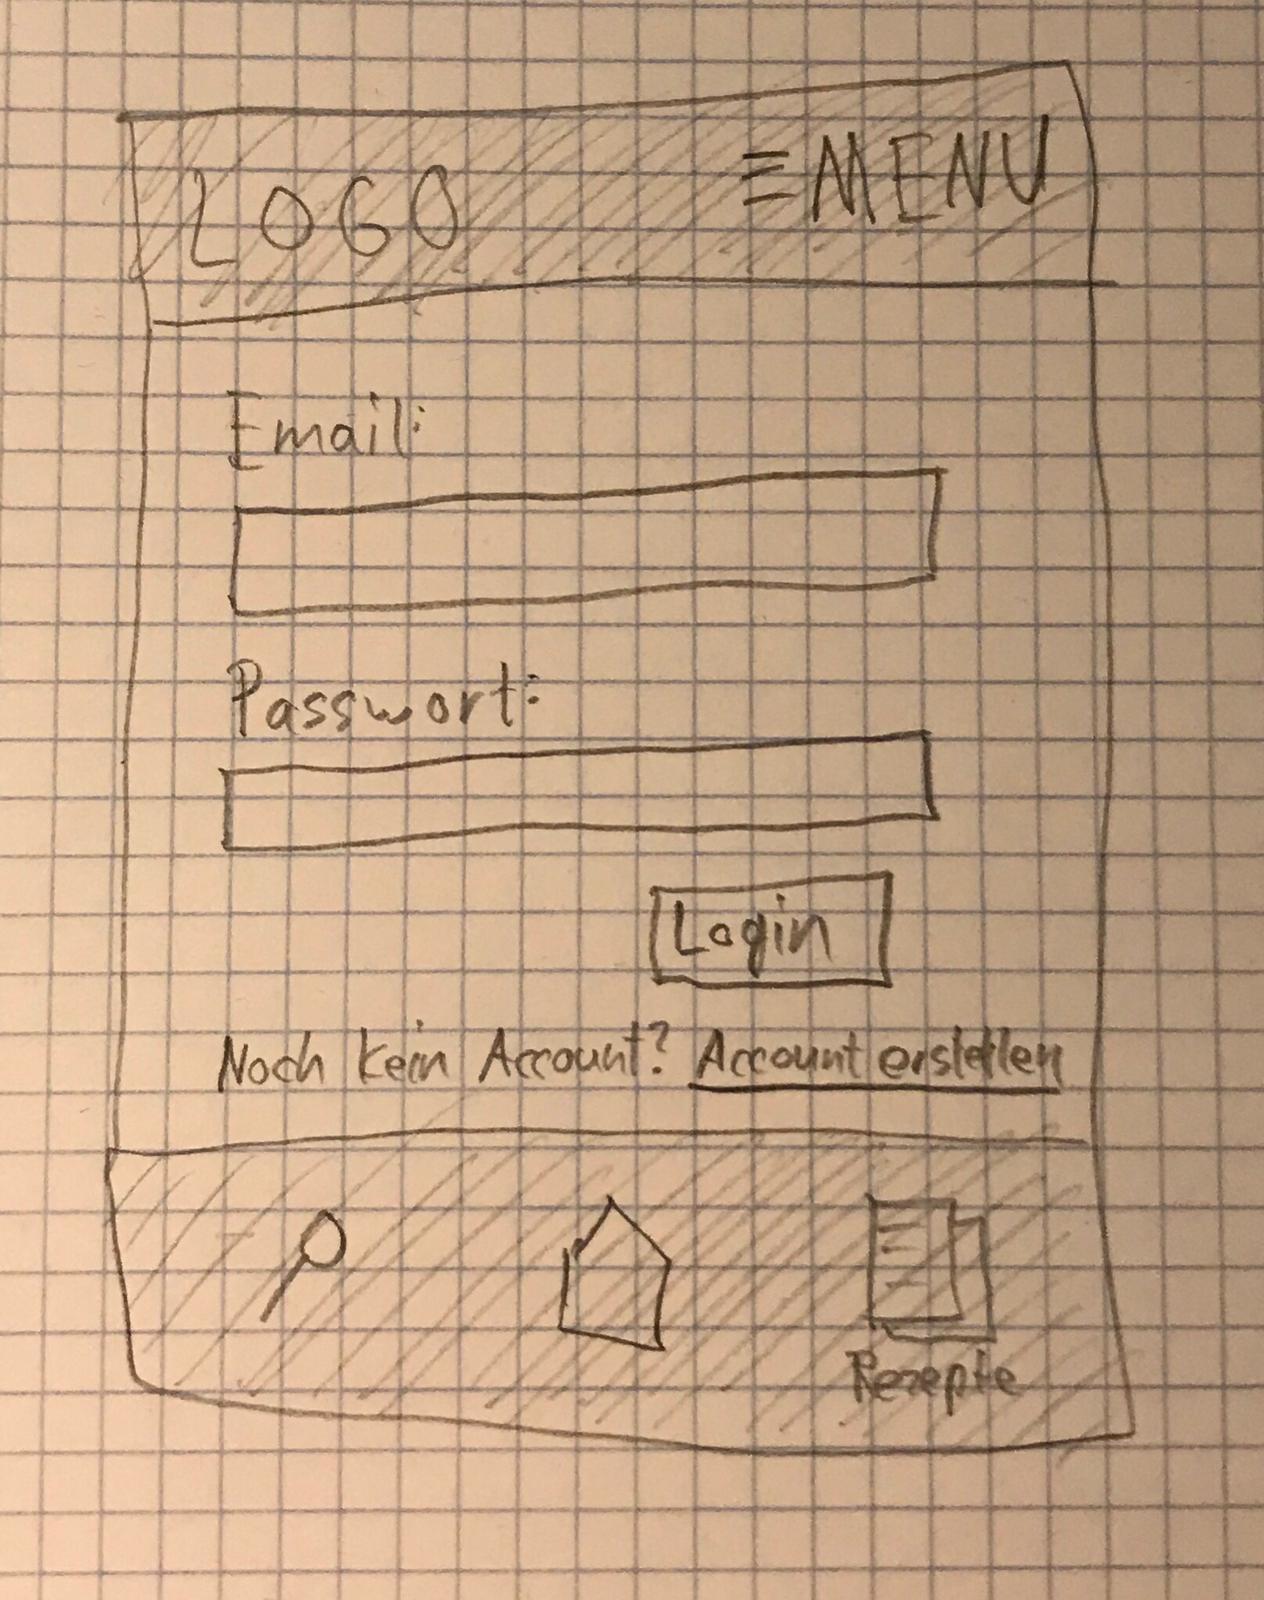 LOGO
≡ MENU
Email:
Passwort:
Login
Noch kein Account? Account erstellen
Rezepte